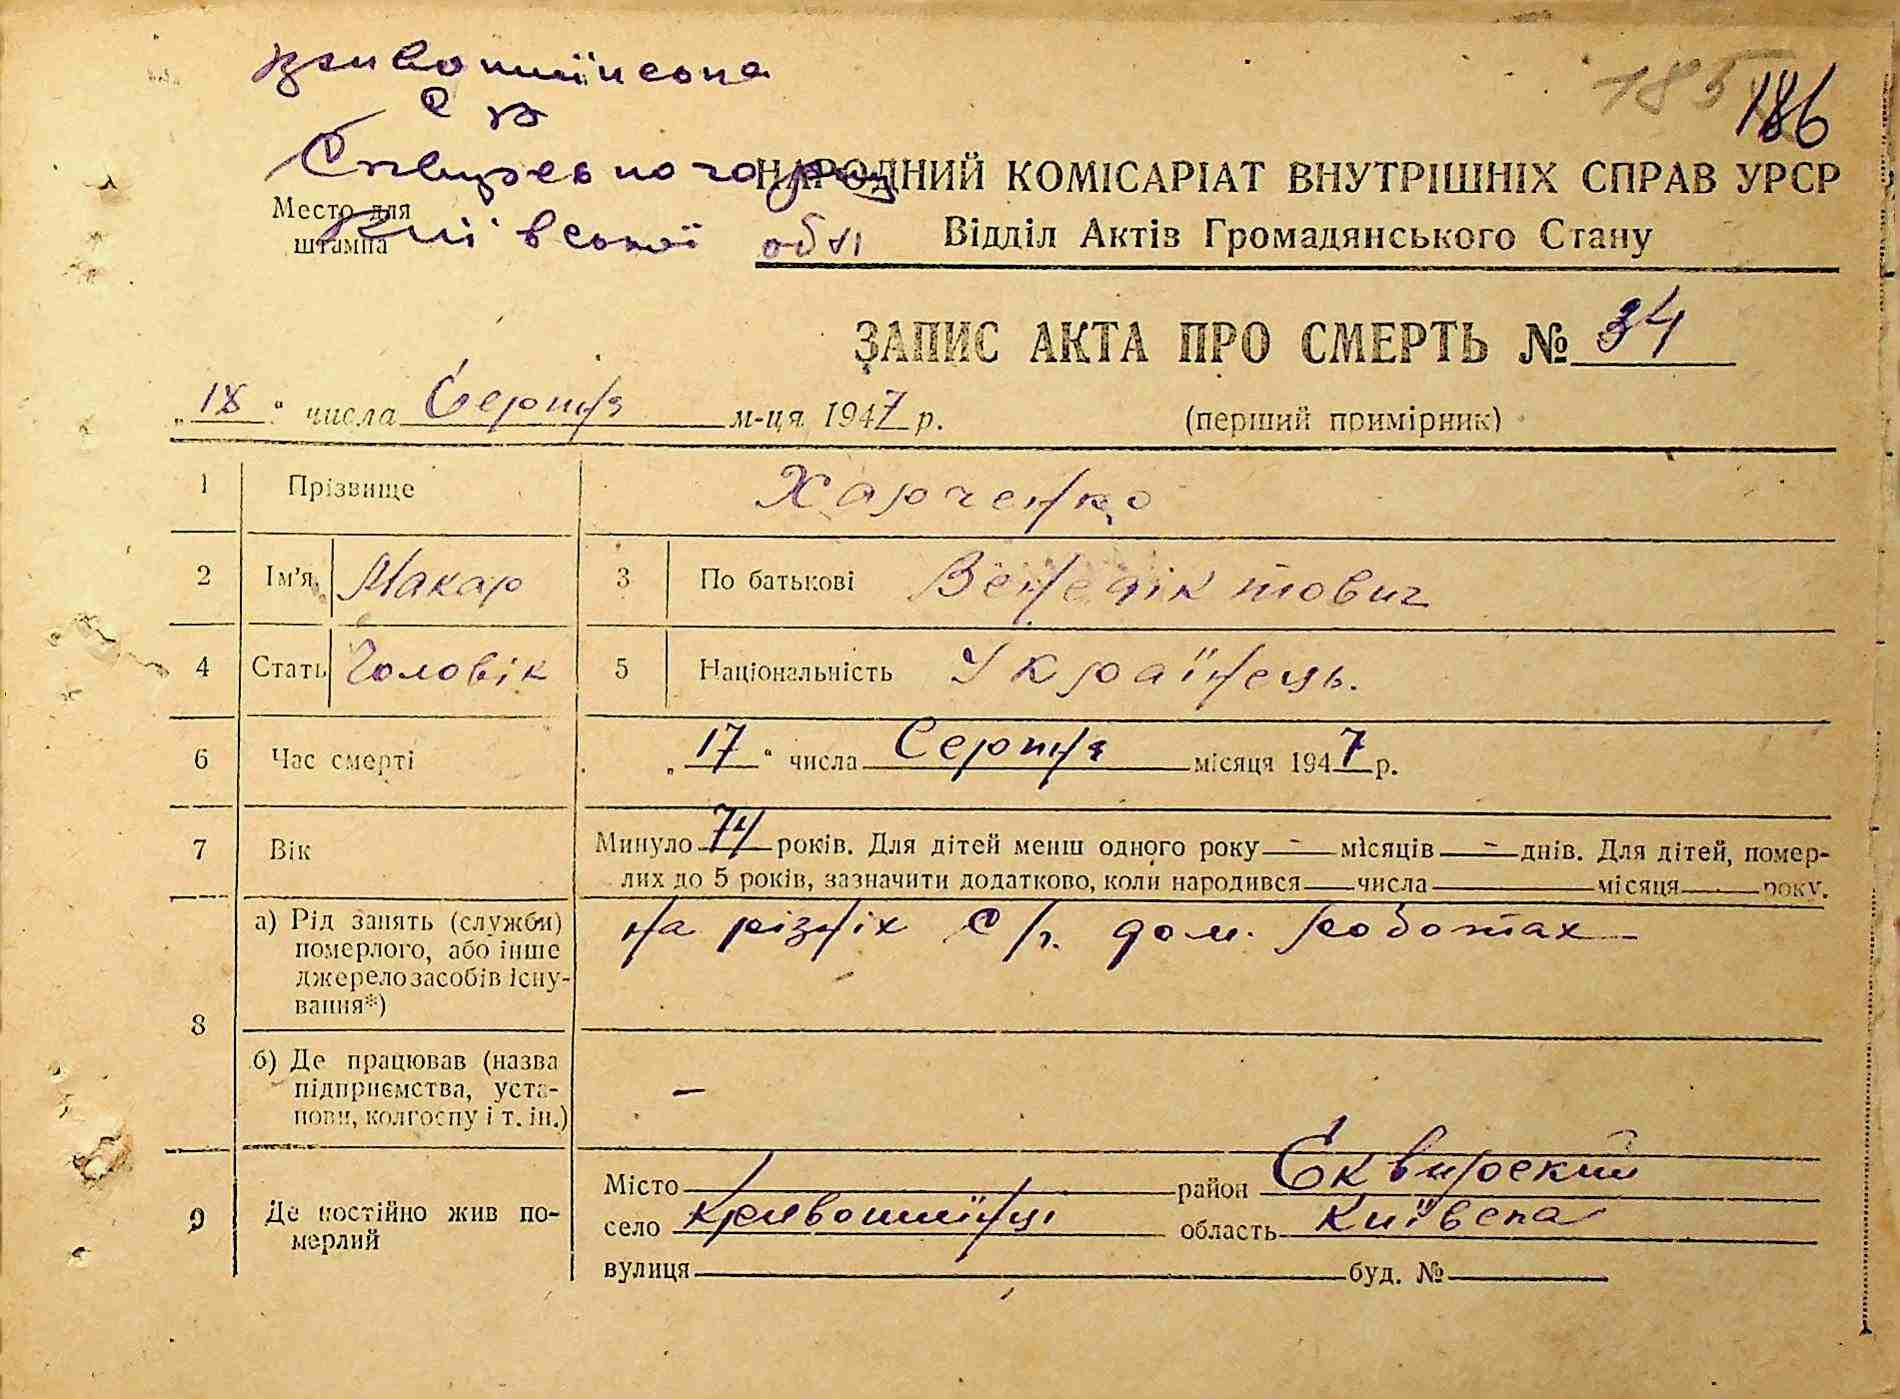 Кривошиїнська
С Р
Сквирського р-ну
Київської обл
185 186
Место для
штампа
НАРОДНИЙ КОМІСАРІАТ ВНУТРІШНІХ СПРАВ УРСР
Відділ Актів Громадянського Стану
ЗАПИС АКТА ПРО СМЕРТЬ № 34
„18" числа Серпня м-ця 1947 р.
(перший примірник)
1 Прізвище Харченко
2 Ім'я Макар 3 По батькові Венедіктович
4 Стать Чоловік 5 Національність Українець.
6 Час смерті „17" числа Серпня місяця 1947 р.
7 Вік Минуло 74 років. Для дітей менш одного року - місяців - днів. Для дітей, помер-
лих до 5 років, зазначити додатково, коли народився числа місяця року.
8 а) Рід занять (служби)
померлого, або інше
джерело засобів існу-
вання*)
на різніх с/г. дом. роботах
б) Де працював (назва
підприємства, уста-
нови, колгоспу і т. ін.)
-
9 Де постійно жив по-
мерлий
Місто район Сквирский
село Кривошиїнці область Київська
вулиця буд. №